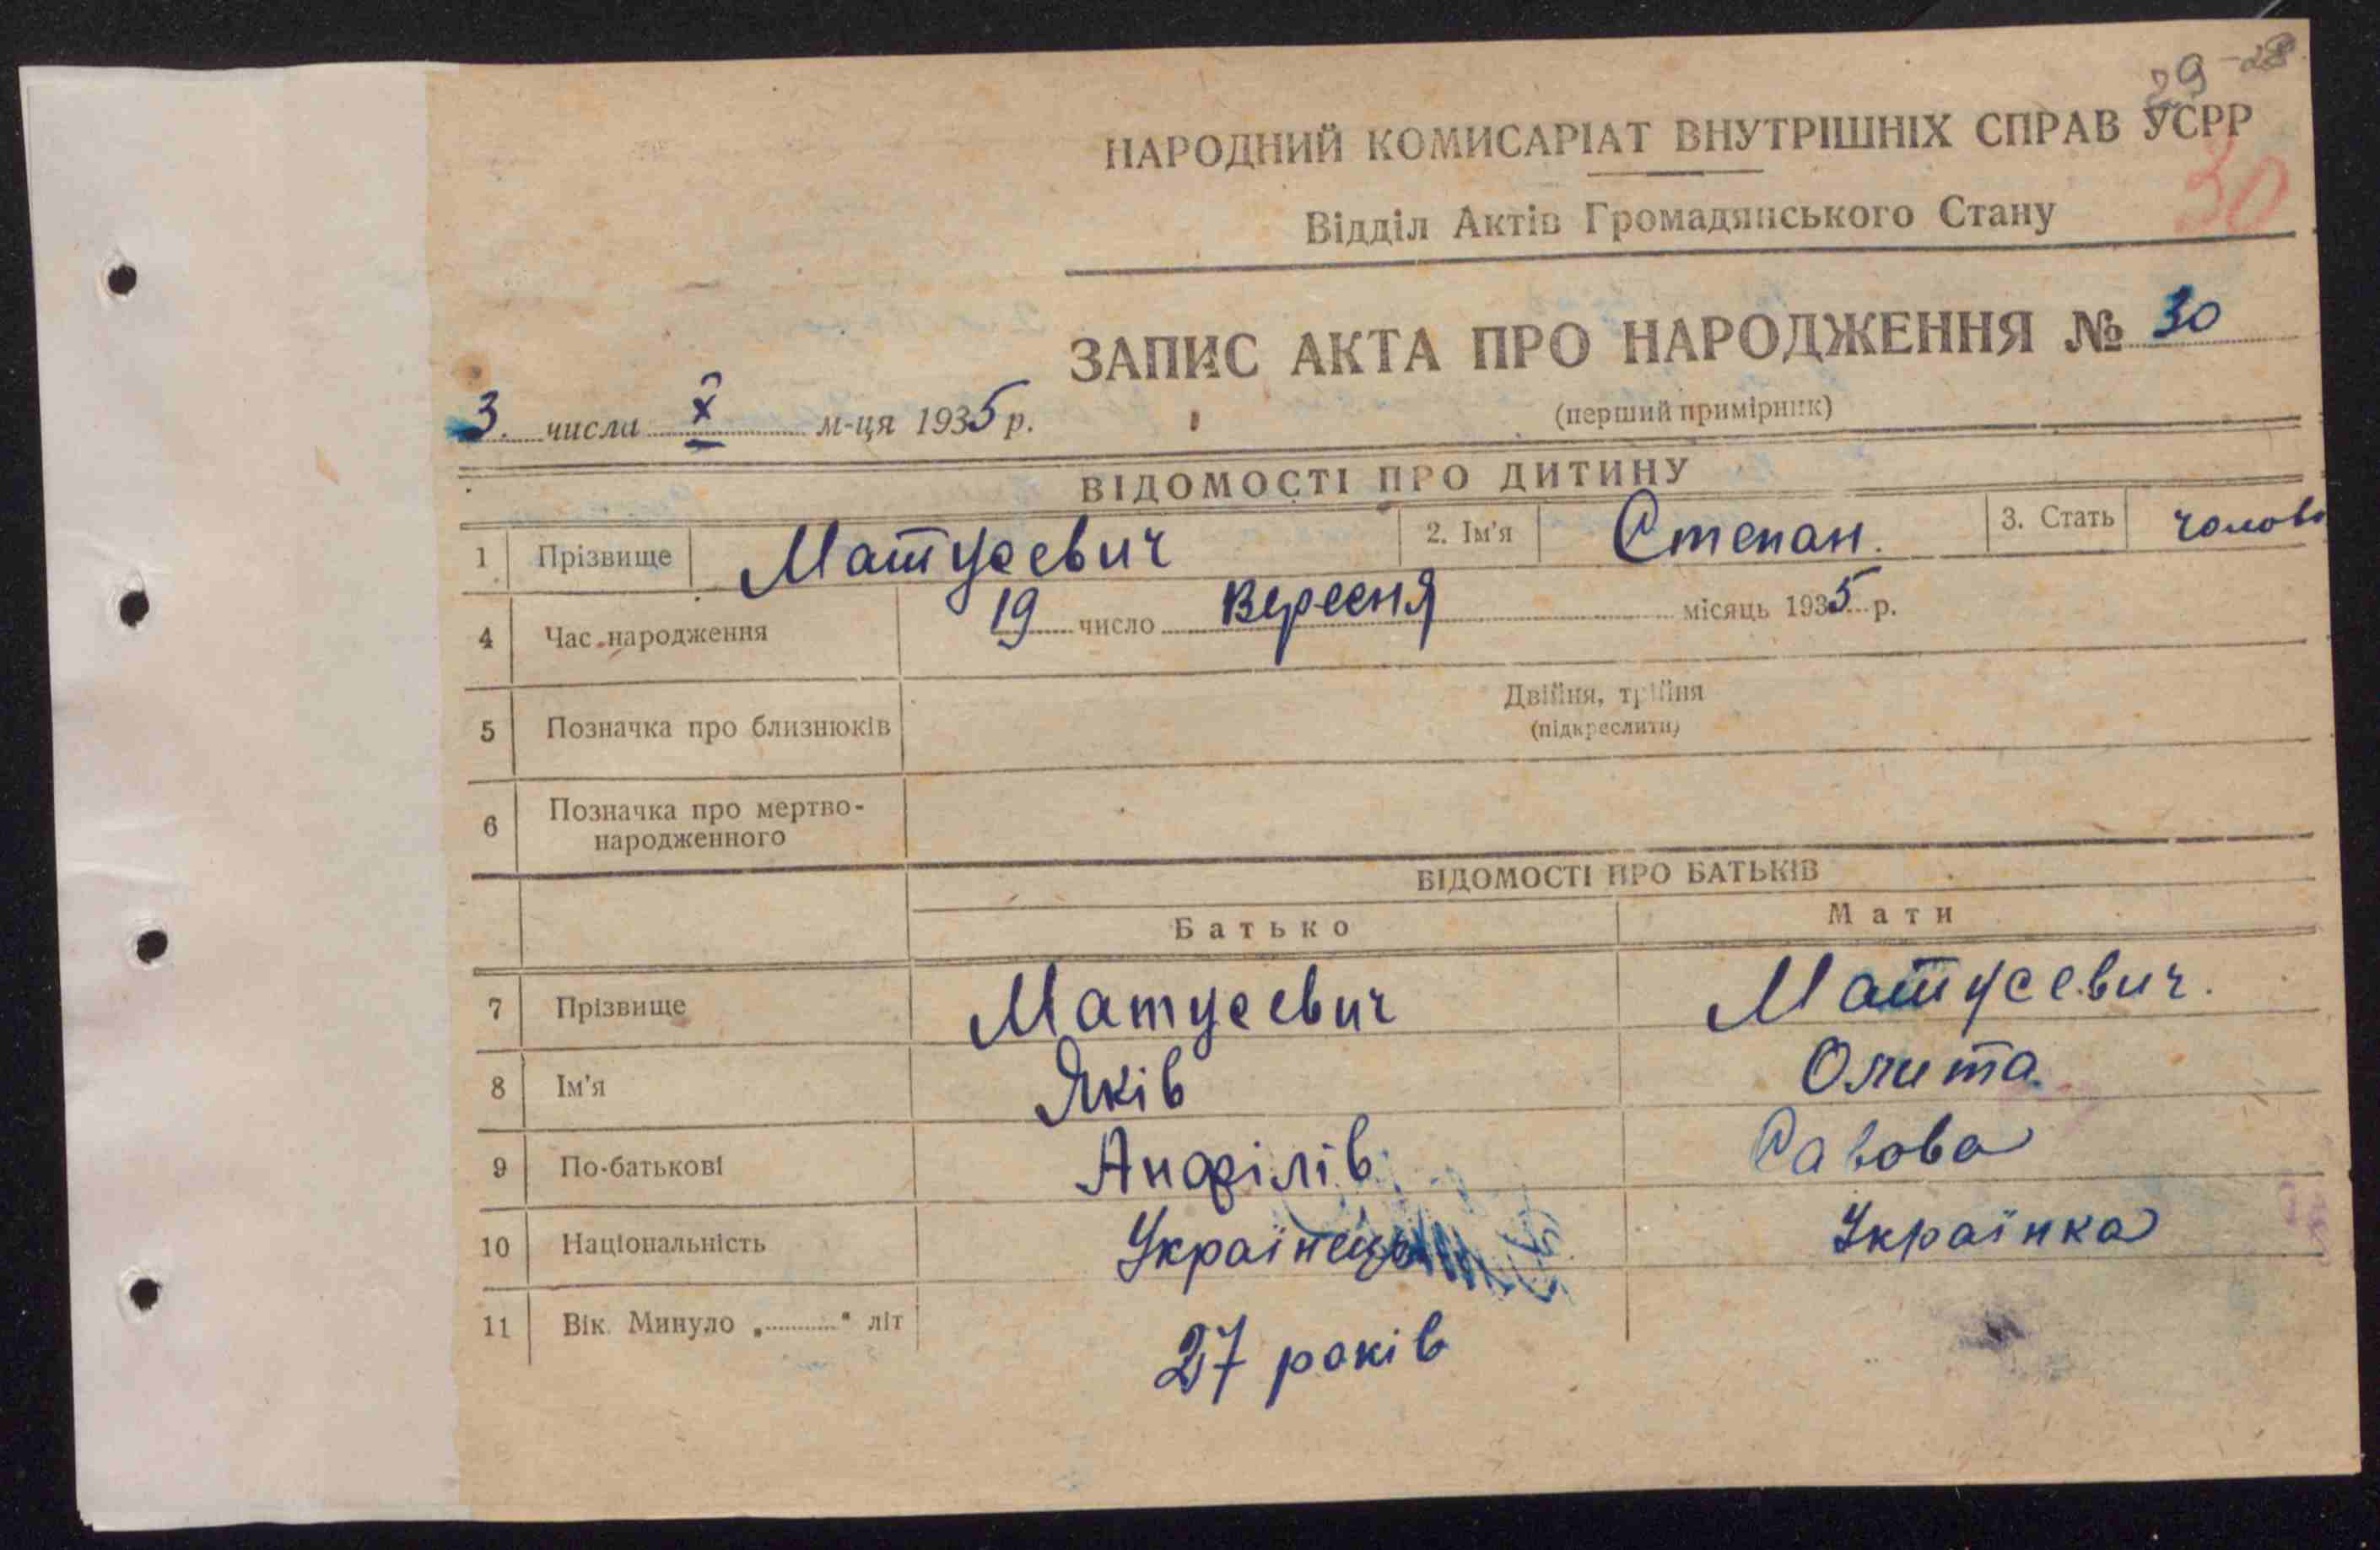 29 - 28
НАРОДНИЙ КОМИСАРІАТ ВНУТРІШНІХ СПРАВ УСРР
30
Відділ Актів Громадянського Стану
ЗАПИС АКТА ПРО НАРОДЖЕННЯ № 30
3. числа X м-ця 1935 р.
(перший примірник)
ВІДОМОСТІ ПРО ДИТИНУ
1 Прізвище Матусевич 2. Ім'я Степан. 3. Стать чолові
4 Час народження 19 число Вересня місяць 1935 р.
5 Позначка про близнюків Двійня, трійня
(підкреслити)
6 Позначка про мертво-
народженного
ВІДОМОСТІ ПРО БАТЬКІВ
Батько Мати
7 Прізвище Матусевич Матусевич.
8 Ім'я Яків
9 По-батькові Анфілів Савова
10 Національність Українець Українка
11 Вік. Минуло „..........“ літ 27 років